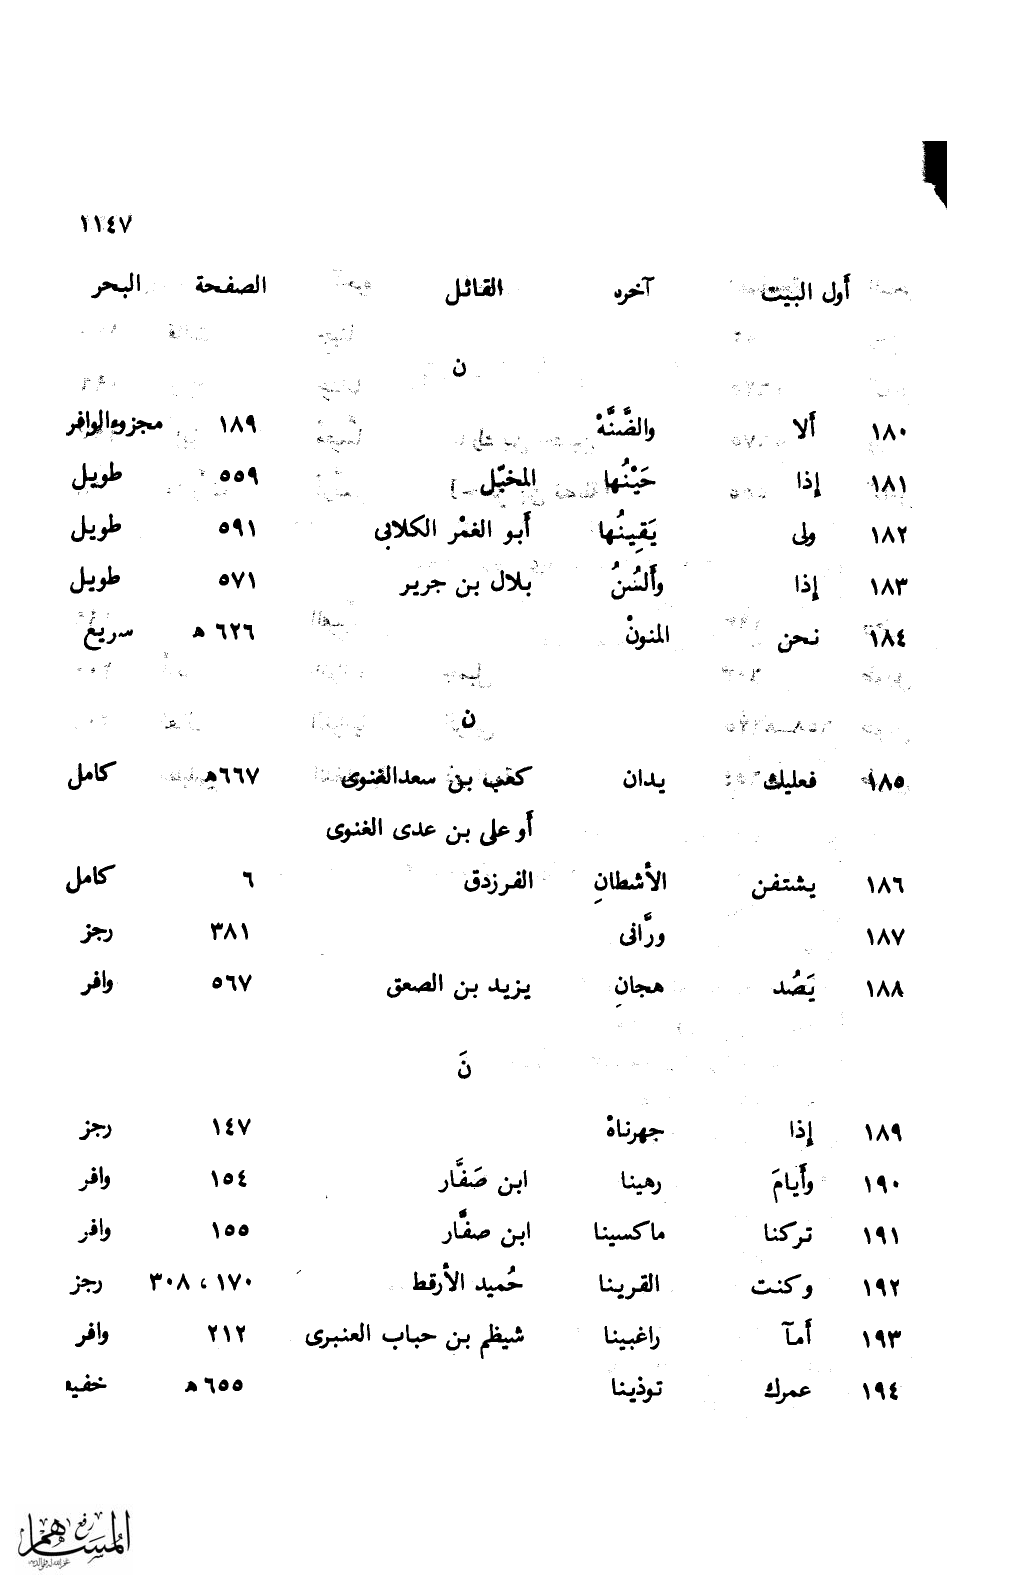 ١١٤٧
أول البيت آخره القائل الصفحة البحر
ن
١٨٠ ألا والضَّنَّهْ ١٨٩ مجزوء الوافر
١٨١ إذا حَيْنُها المخبّل ٥٥٩ طويل
١٨٢ ولى يَقِينُها أبو الغمْر الكلابي ٥٩١ طويل
١٨٣ إذا وألسُنُ بلال بن جرير ٥٧١ طويل
١٨٤ نحن المنونْ ٦٢٦ هـ سريع
ن
١٨٥ فعليك يدان كعب بن سعد الغنوى ٦٦٧هـ كامل
أو على بن عدى الغنوى
١٨٦ يشتفن الأشطانِ الفرزدق ٦ كامل
١٨٧ ورَّانى ٣٨١ رجز
١٨٨ يَصُد هجانِ يزيد بن الصعق ٥٦٧ وافر
نَ
١٨٩ إذا جهرناهْ ١٤٧ رجز
١٩٠ وأيامَ رهينا ابن صَفَّار ١٥٤ وافر
١٩١ تركنا ماكسينا ابن صفَّار ١٥٥ وافر
١٩٢ وكنت القرينا حُميد الأرقط ١٧٠ ، ٣٠٨ رجز
١٩٣ أمآ راغبينا شيظم بن حباب العنبرى ٢١٢ وافر
١٩٤ عمرك توذينا ٦٥٥ هـ خفيف